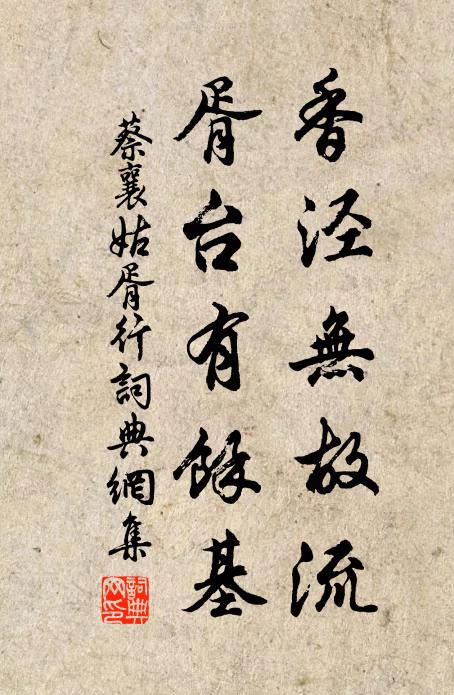 香泾無故流
胥台有餘基
蔡襄姑胥行詞典網集
詞典网印